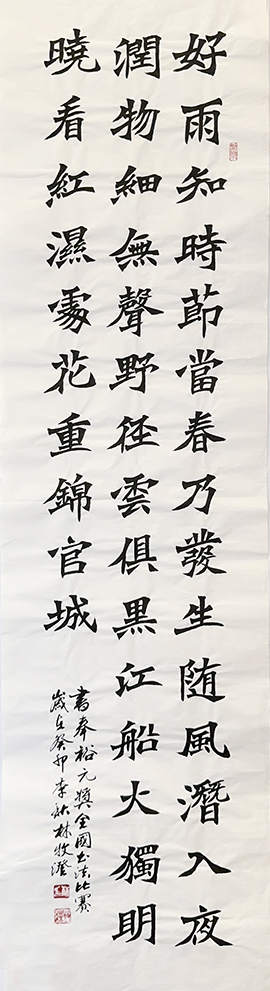 好雨知時節當春乃發生随風潛入夜
潤物細無聲野徑雲俱黑江船火獨明
曉看紅濕處花重錦官城
書奉裕元獎全國書法比賽
歲在癸卯季秋林牧澄